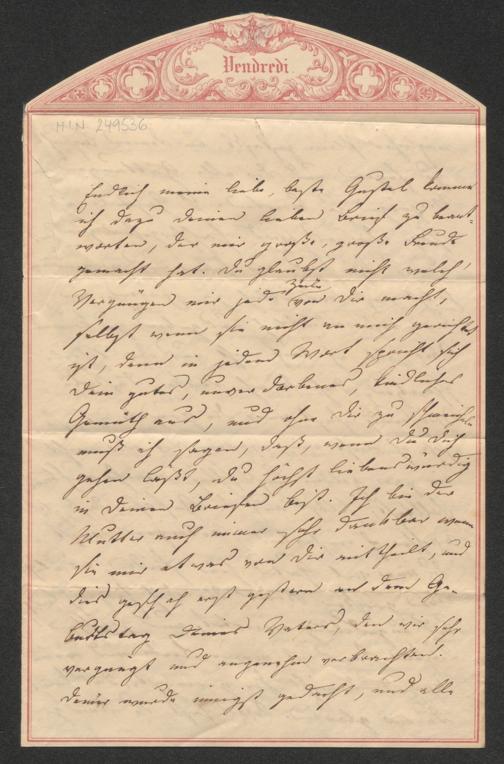 Vendredi
H.I.N. 249536
Endlich meine liebe, beste Gustel komme
ich dazu Deinen lieben Brief zu beant-
worten, der mir große, große Freude
gemacht hat. Du glaubst nicht welch'
Vergnügen mir jede Zeile von Dir macht,
selbst wenn sie nicht an mich gerichtet
ist, denn in jedem Wort spricht sich
Dein gutes, unverdorbenes, kindliches
Gemüth aus, und ohne Dir zu schmeicheln
muß ich sagen, daß, wenn Du Dich
gehen läßt, Du höchst liebenswürdig
in Deinen Briefen bist. Ich bin der
Mutter auch immer sehr dankbar wenn
sie mir etwas von Dir mittheilt, und
dies geschah erst gestern an dem Ge-
burtstag Deines Vaters, den wir sehr
vergnügt und angenehm verbrachten.
Deiner wurde innigst gedacht, und alle